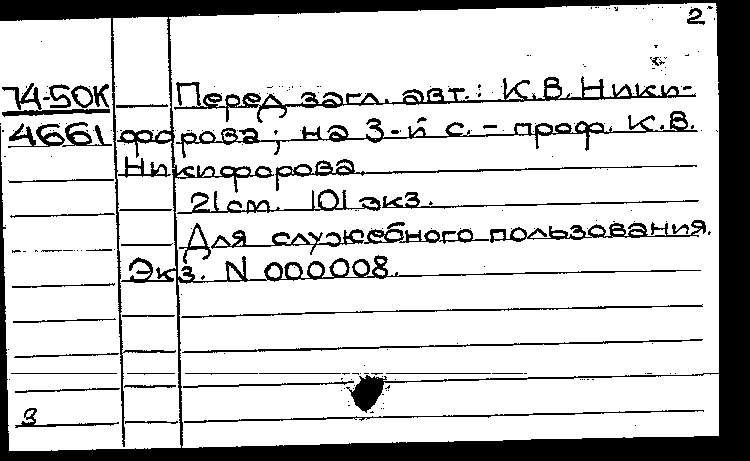 2
74-50К Перед загл. авт.: К.В. Ники-
4661 форова; на 3-й с. - проф. К.В.
Никифорова.
21 см. 101 экз.
Для служебного пользования.
Экз. N 000008.